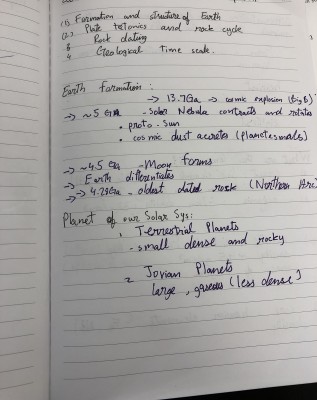 (1) Formation and structure of Earth
(2.) Plate tetonics and rock cycle
3 Rock dating
4 Geological Time scale.
Earth formation :
→ 13.7Ga → cosmic explosion (Big B)
→ ~5 Ga - Solar Nebula contracts and rotates
• proto-Sun
• cosmic dust accretes (planetesmals)
→ ~4.5 Ga - Moon forms
→ Earth differentiates
→ 4.28Ga - oldest dated rock (Northern
Planet of our Solar Sys:
1. Terrestrial Planets
- small dense and rocky
2 Jovian Planets
large, gaseous (less dense)